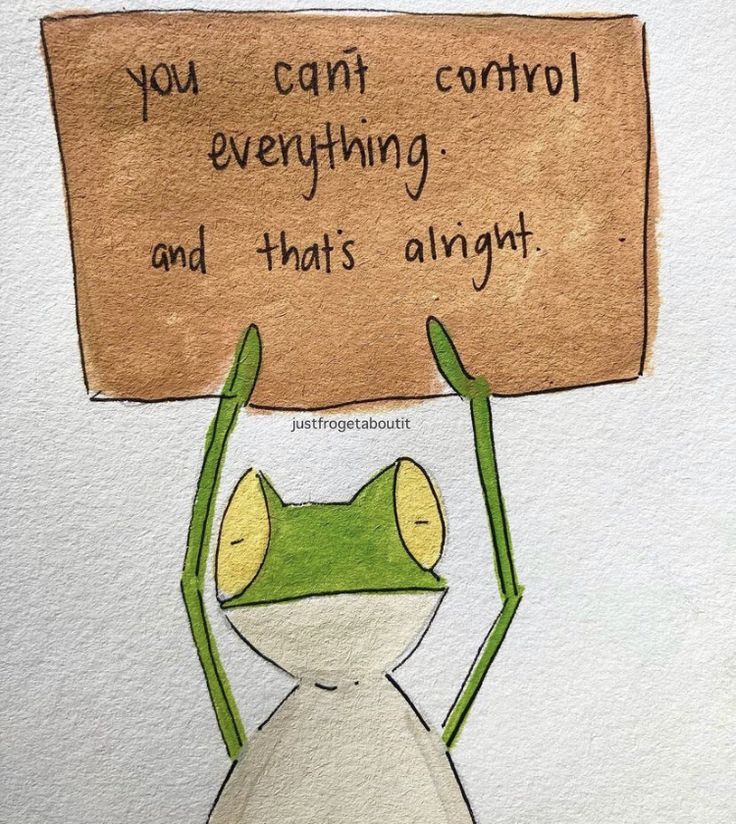 you can't control
everything.
and that's alright.
justfrogetaboutit